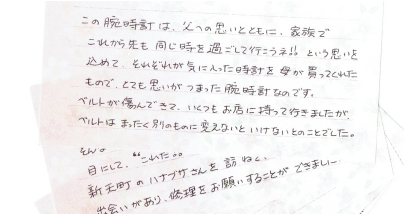 この腕時計は、父への思いとともに、家族で
これから先も同じ時を過ごして行こうネ!! という思いを
込めて、それぞれが気に入った時計を母が買ってくれた
もので、とても思いがつまった腕時計なのです。
ベルトが傷んできて、いくつもお店に持って行きましたが、
ベルトはまったく別のものに変えないといけないとのことでした。
そん。
目にして、“これだ。。
新天町のハナブサさんを訪ねく、
出会いがあり、修理をお願いすることができまし